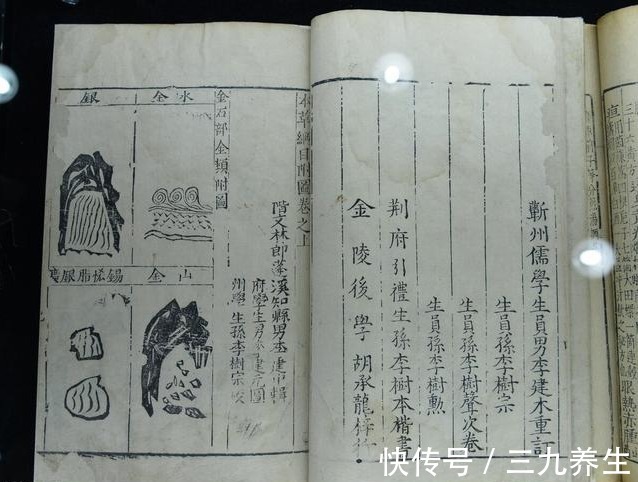 蘄州儒學生員男李建木重訂
生員孫李樹宗
生員孫李樹聲次卷
生員孫李樹勳
荆府引禮生孫李樹本楷書
金陵後學胡承龍梓行
本草綱目附圖卷之上
階文林郎蓬溪知縣男李建中輯
府學生男李建元圖
州學生孫李樹宗校
金石部金類附圖
水金
銀
山金
錫恡脂銀
快传号 / 三九养生